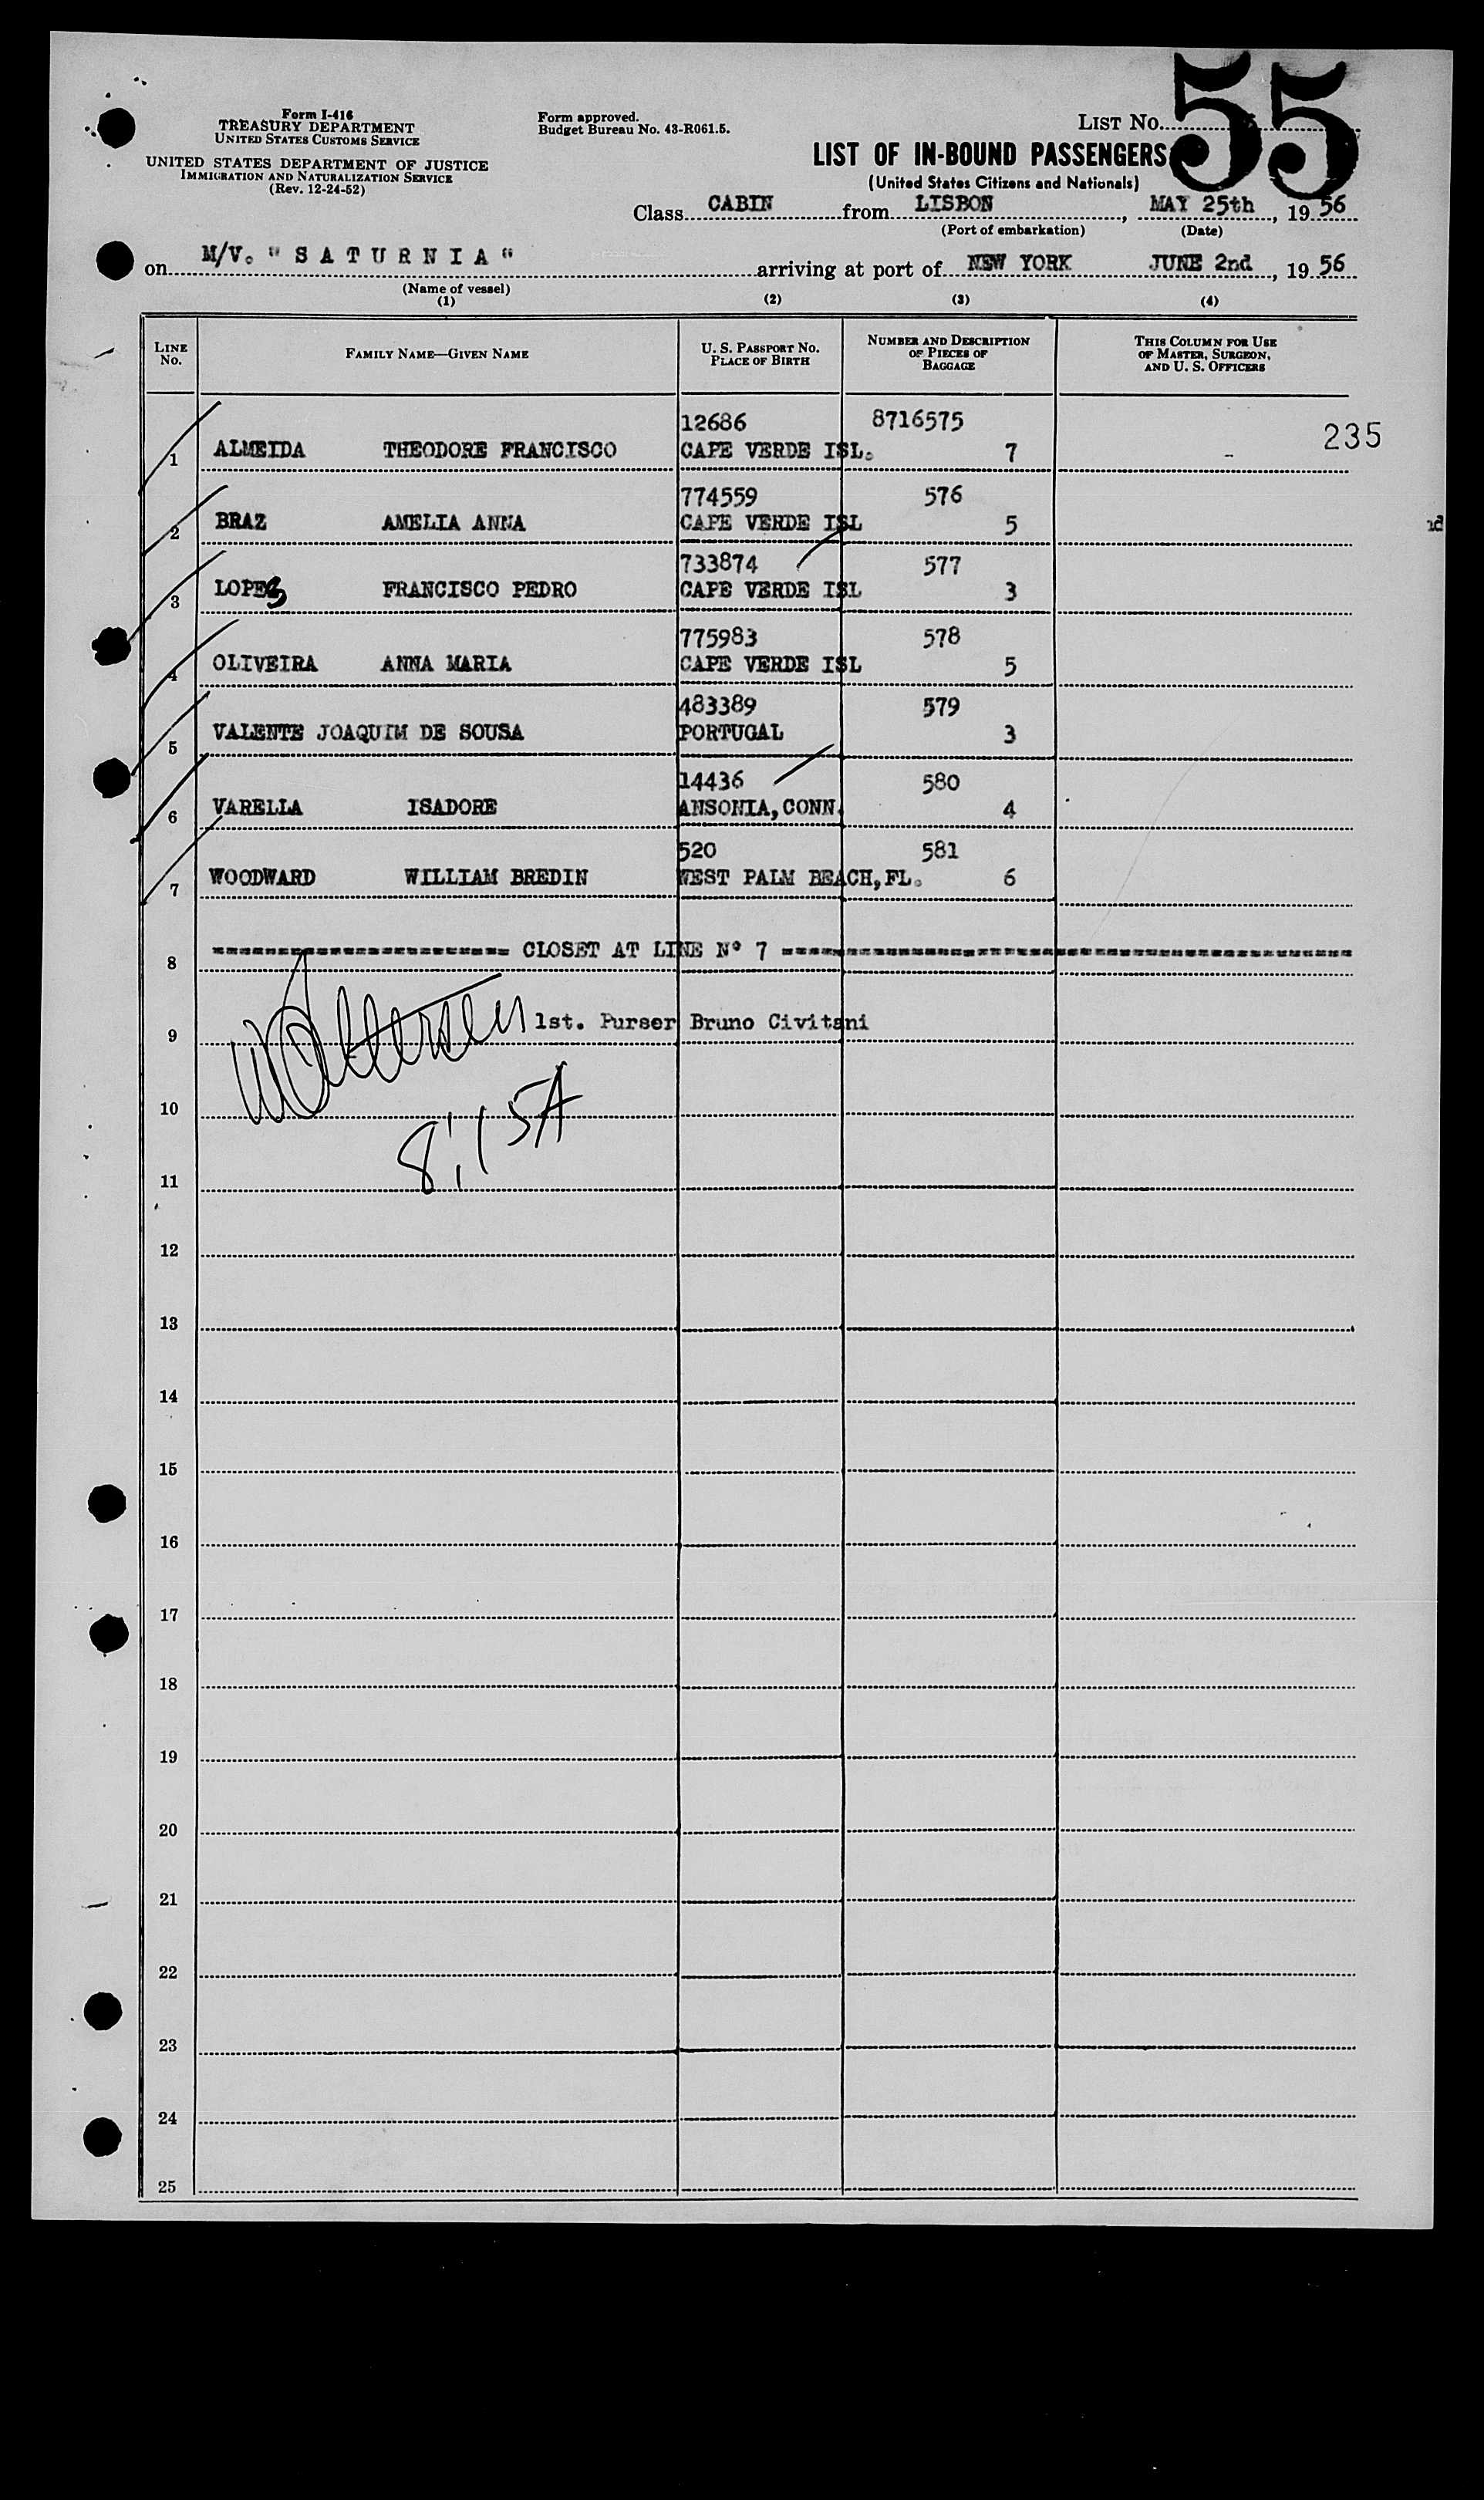 55
Form I-416
TREASURY DEPARTMENT
UNITED STATES CUSTOMS SERVICE
UNITED STATES DEPARTMENT OF JUSTICE
IMMIGRATION AND NATURALIZATION SERVICE
(Rev. 12-24-52)
Form approved.
Budget Bureau No. 43-R061.5.
LIST NO.
LIST OF IN-BOUND PASSENGERS
(United States Citizens and Nationals)
Class CABIN from LISBON, MAY 25th, 1956
(Port of embarkation) (Date)
on M/V. "SATURNIA" arriving at port of NEW YORK JUNE 2nd, 1956
(Name of vessel)
(1) (2) (3) (4)
LINE No. FAMILY NAME—GIVEN NAME U. S. PASSPORT NO. PLACE OF BIRTH NUMBER AND DESCRIPTION OF PIECES OF BAGGAGE THIS COLUMN FOR USE OF MASTER, SURGEON, AND U. S. OFFICERS
12686 8716575 235
1 ALMEIDA THEODORE FRANCISCO CAPE VERDE ISL. 7
774559 576
2 BRAZ AMELIA ANNA CAPE VERDE ISL 5
733874 577
3 LOPES FRANCISCO PEDRO CAPE VERDE ISL 3
775983 578
4 OLIVEIRA ANNA MARIA CAPE VERDE ISL 5
483389 579
5 VALENTE JOAQUIM DE SOUSA PORTUGAL 3
14436 580
6 VARELLA ISADORE ANSONIA, CONN. 4
520 581
7 WOODWARD WILLIAM BREDIN WEST PALM BEACH, FL. 6
8 CLOSET AT LINE Nº 7
9 1st. Purser Bruno Civitani
10
8:15A
11
12
13
14
15
16
17
18
19
20
21
22
23
24
25